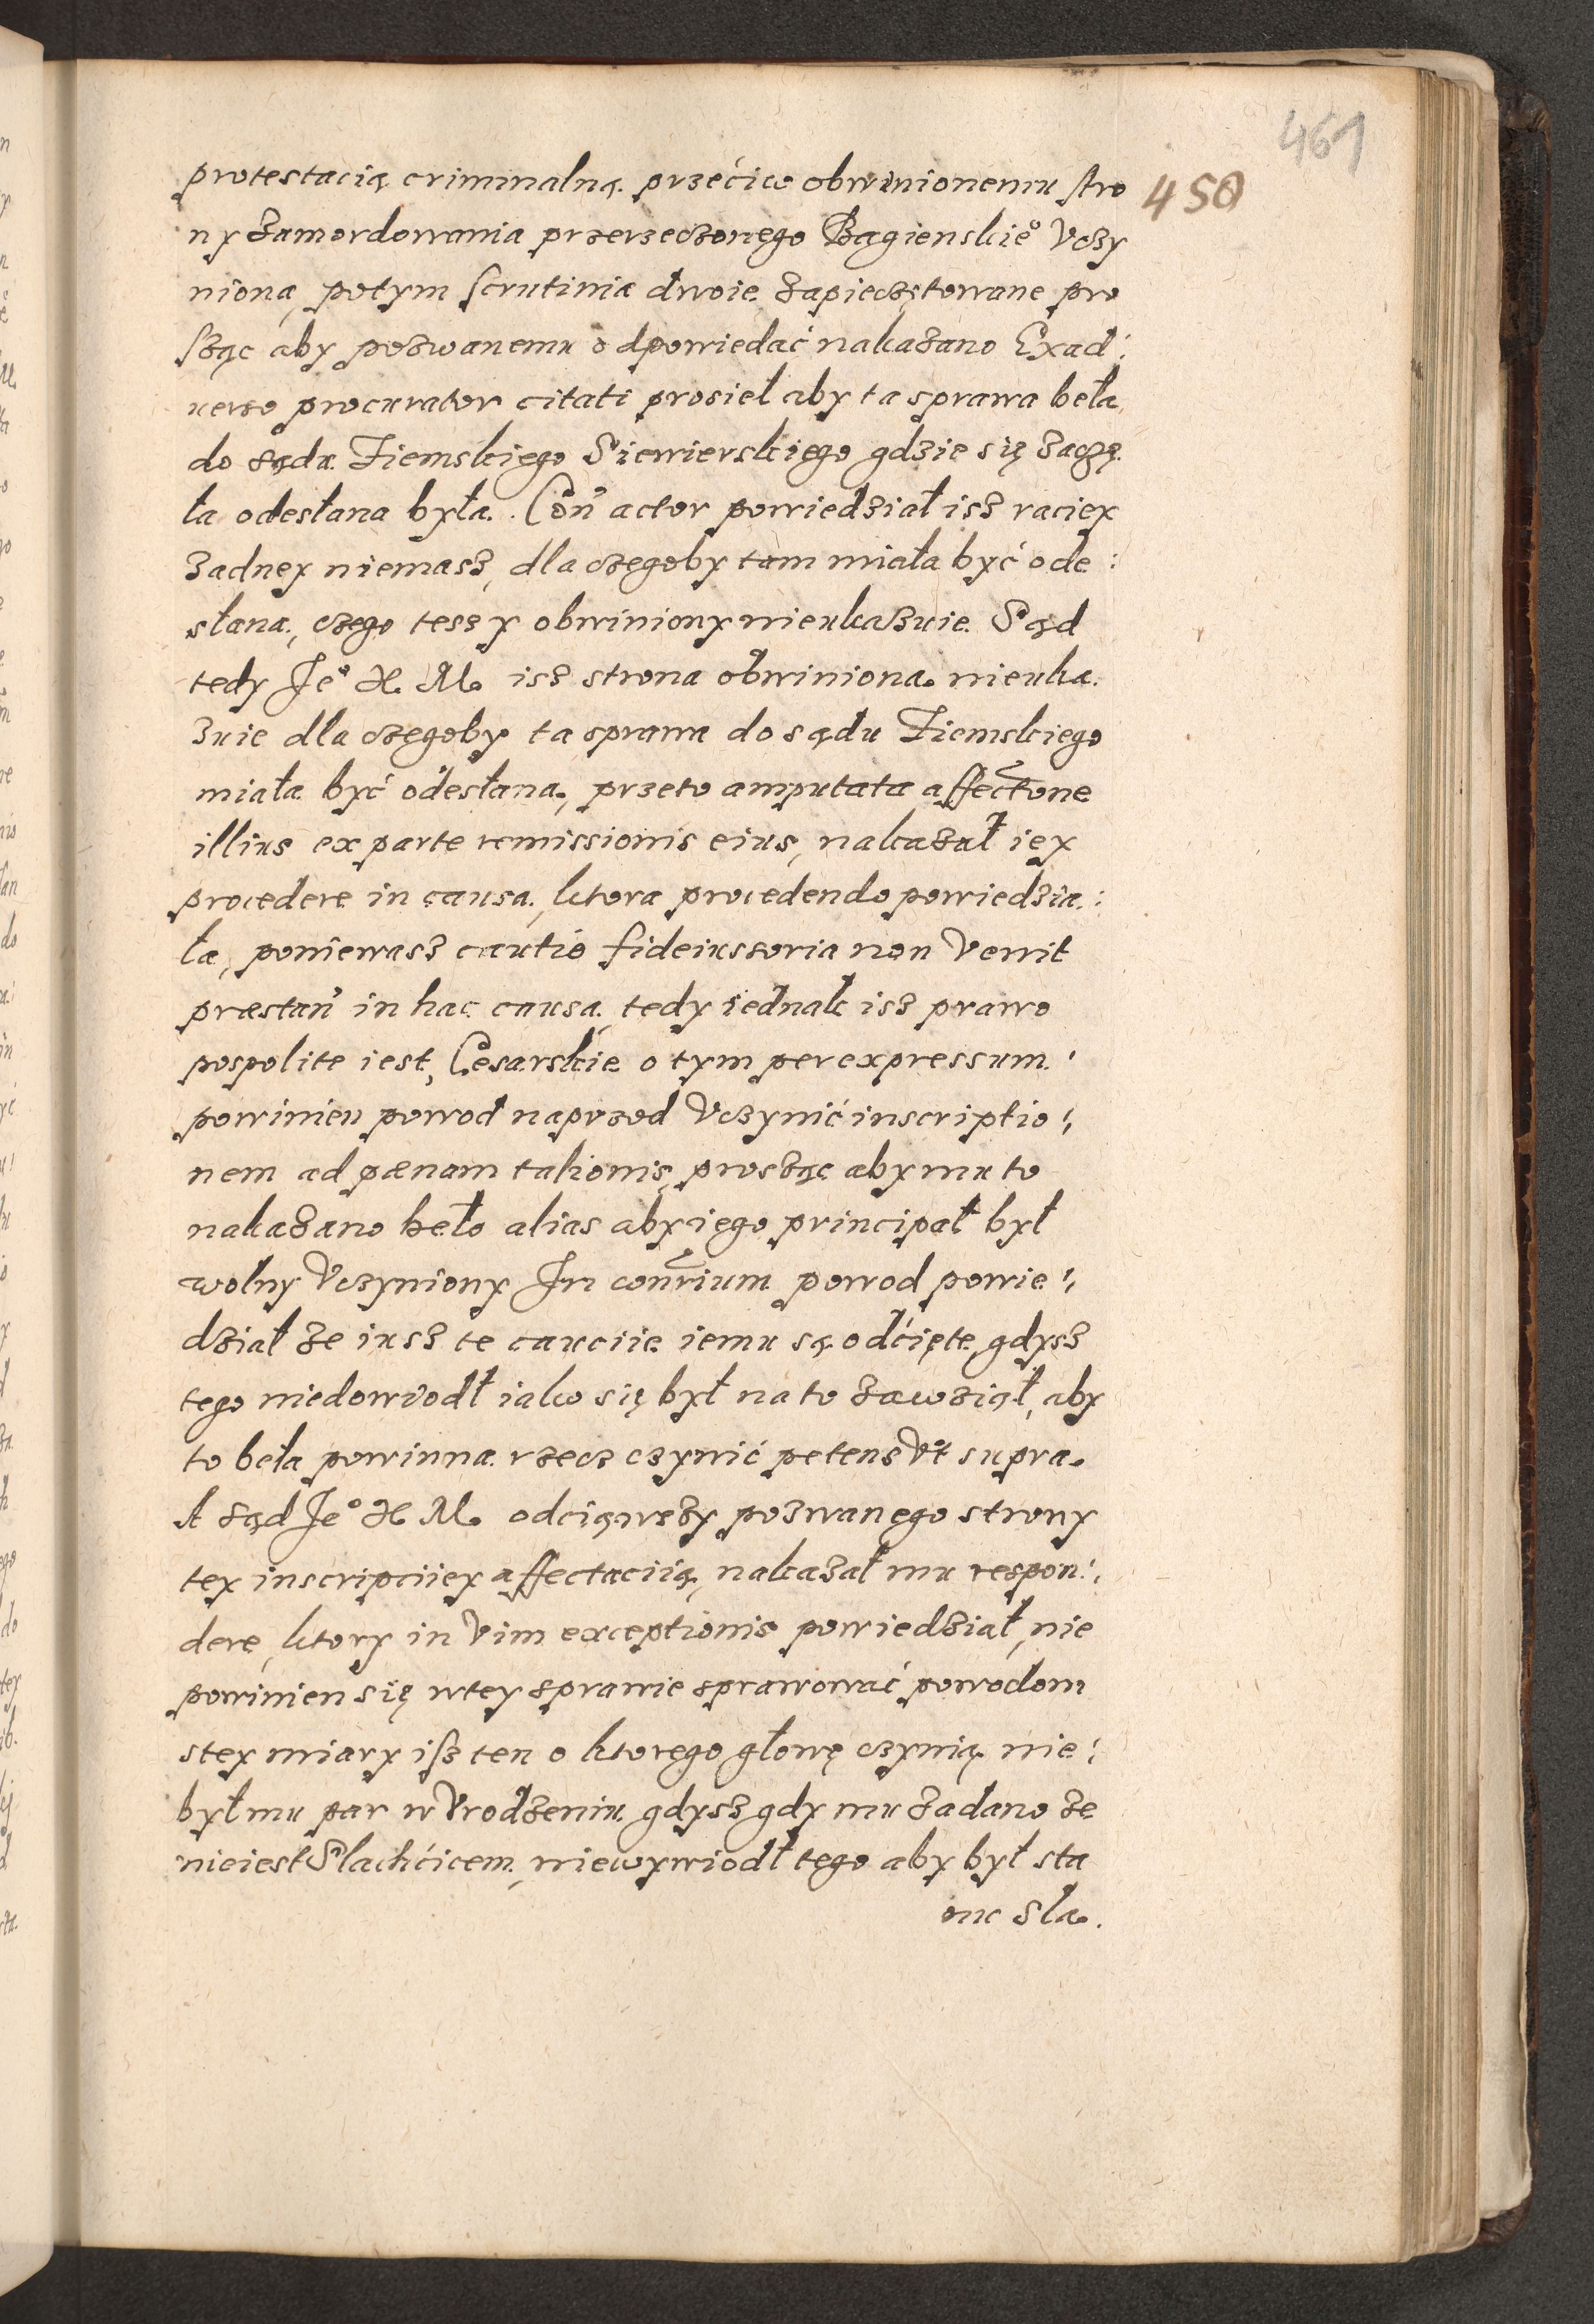 461
450
protestacią criminalną przećiw obwinionemu stro
ny zamordowania przerzeczonego Bagienskie° Vczy
nioną, potym scrutinia dwoie zapieczętowane pro
sząc aby pozwanemu odpowiedać nakazano Exad:
uerso procurator citati prosieł aby ta sprawa beła
do sądu Ziemskiego Siewierskiego gdzie się zaczę
ła odesłana była. Con̄ actor powiedział isz raciey
zadney niemasz, dla czegoby tam miała być ode:
słana, czego tesz y obwiniony nieukazuie. Sąd
tedy Je° X. M. isz strona obwiniona nieuka
zuie dla czegoby ta sprawa do sądu Ziemskiego
miała być odesłana, przeto amputata affectōne
illius ex parte remissionis eius, nakazał iey
procedere in causa, ktora procedendo powiedzia:
ła, poniewasz cautio fideiussoria non venit
præstan̄ in hac causa, tedy iednak isz prawo
pospolite iest, Cesarskie o tym per expressum
powinien powod naprzod Vczynić inscriptio:
nem ad pænam talionis, prosząc aby mu to
nakazano beło alias aby iego principał był
wolny Vczyniony In conr̄ium powod powie:
dział ze iusz te cauciie iemu są odćięte, gdysz
tego niedowiodł iako się był na to zawziął, aby
to beła powinna rzecz czynić petens Vt supra.
A sąd Je° X M. odciąwszy pozwanego strony
tey inscripciiey affectaciią, nakazał mu respon:
dere, ktory in Vim exceptionis powiedział, nie
powinien się wtey sprawie sprawować powodom
stey miary isz ten o ktorego głowę czynią nie:
był mu par w Vrodzeniu gdysz gdy mu zadano ze
nieiest Slachćicem, niewywiodł tego aby był sta
nu Sla.